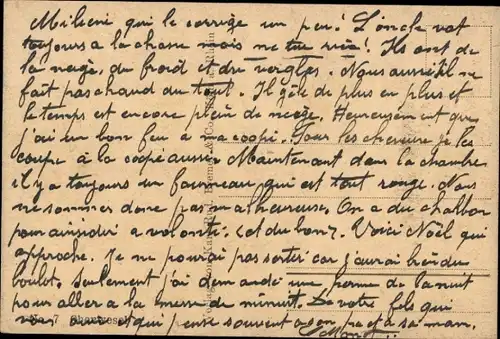 Milieni qui le corrige un peu! L'oncle vat
toujours a la chasse mais ne tue rien! Ils ont de
la neige, du froid et du verglas. Nous aussi il ne
fait pas chaud du tout. Il gèle de plus en plus et
le temps est encore plein de neige. Heureusement que
j'ai un bon feu a ma coopé. Pour les cheveux je les
coupe à la coopé aussi. Maintenant dans la chambre
il y a toujours un fourneau qui est tout rouge. Nous
ne sommes donc pas malheureuse. On a du charbon
pour ainsi dire a volonté. (et du bon). Voici Noël qui
approche. Je ne pourrai pas sortir car j'aurai bien du
boulot. Seulement j'ai demandé une permе de la nuit
pour aller a la messe de minuit. De votre fils qui
vous et qui pense souvent a son pa et a sa mam.
No. 7 Oberwesel